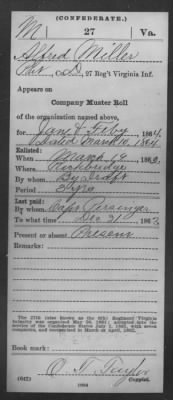 (CONFEDERATE.)
M 27 Va.
Alfred Miller
Pvt, Co. D, 27 Reg't Virginia Inf.
Appears on
Company Muster Roll
of the organization named above,
for Jan & Feby, 1864.
dated March 10, 1864
Enlisted:
When March 19, 1862.
Where Rockbridge
By whom By Draft
Period 3 yrs
Last paid:
By whom Capt.
To what time Dec 31, 1863
Present or absent Present
Remarks:
The 27th (also known as the 6th) Regiment Virginia
Infantry was organized May 30, 1861; accepted into the
service of the Confederate States July 1, 1861, with seven
companies, and reorganized in March and April, 1862.
Book mark:
O. T. Taylor
(642) Copyist.